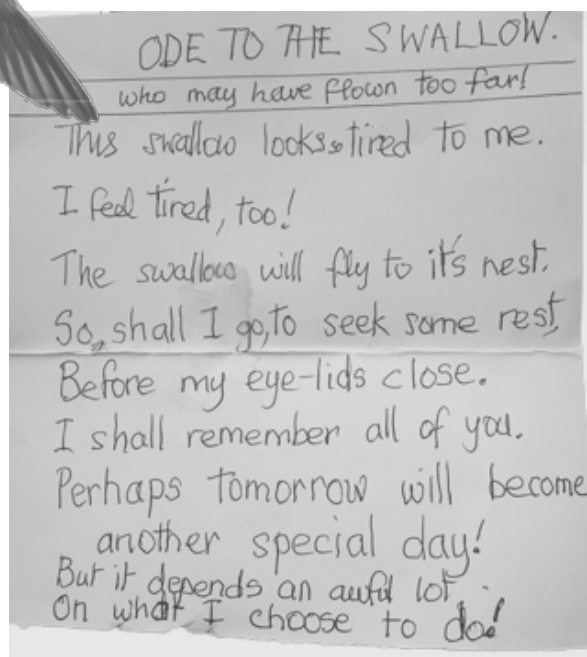 ODE TO THE SWALLOW.
who may have flown too far!
This swallow looks so tired to me.
I feel tired, too!
The swallow will fly to it's nest.
So, shall I go, to seek some rest,
Before my eye-lids close.
I shall remember all of you.
Perhaps tomorrow will become
another special day!
But it depends an awful lot
On what I choose to do!